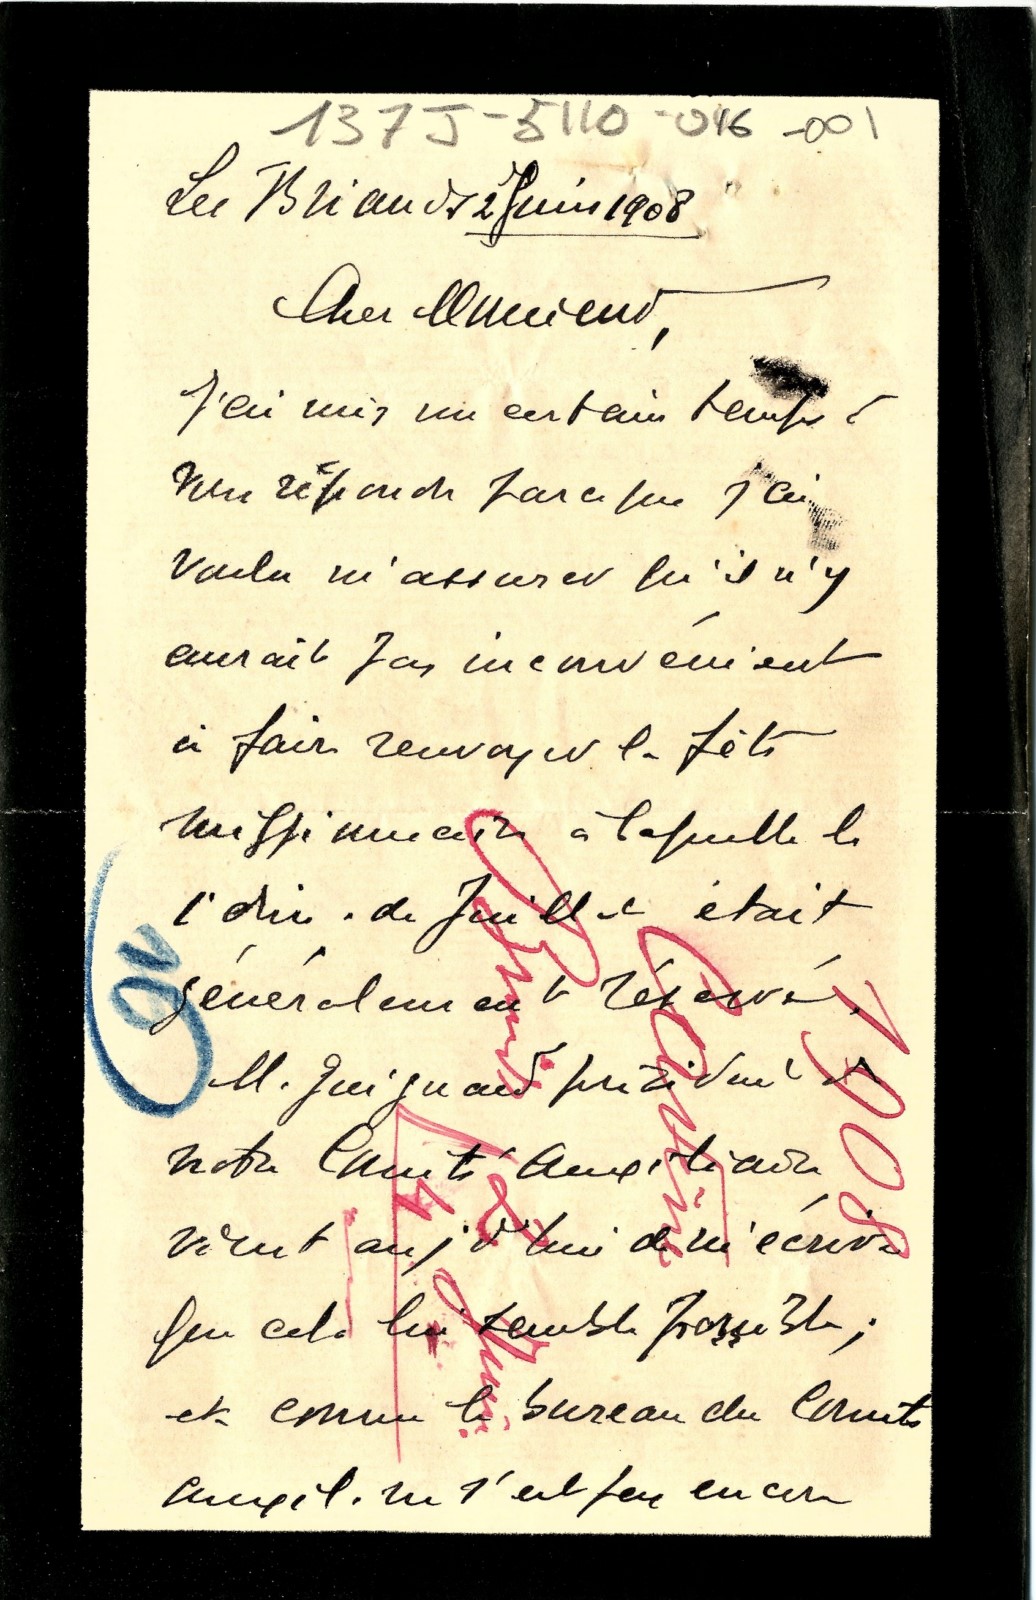 137J-5110-046-001
Les Briands 2 Juin 1908
Cher Monsieur,
J'ai mis un certain temps à
vous répondre parce que j'ai
voulu m'assurer qu'il n'y
aurait pas inconvénient
à faire renvoyer la fête
missionnaire à laquelle le
1er dim. de Juillet était
généralement réservé.
M. Guignard président de
notre Comité Auxiliaire
vient aujd'hui de m'écrire
que cela lui semble possible ;
et comme le bureau du Comité
auxil. ne s'est pas encore
1908